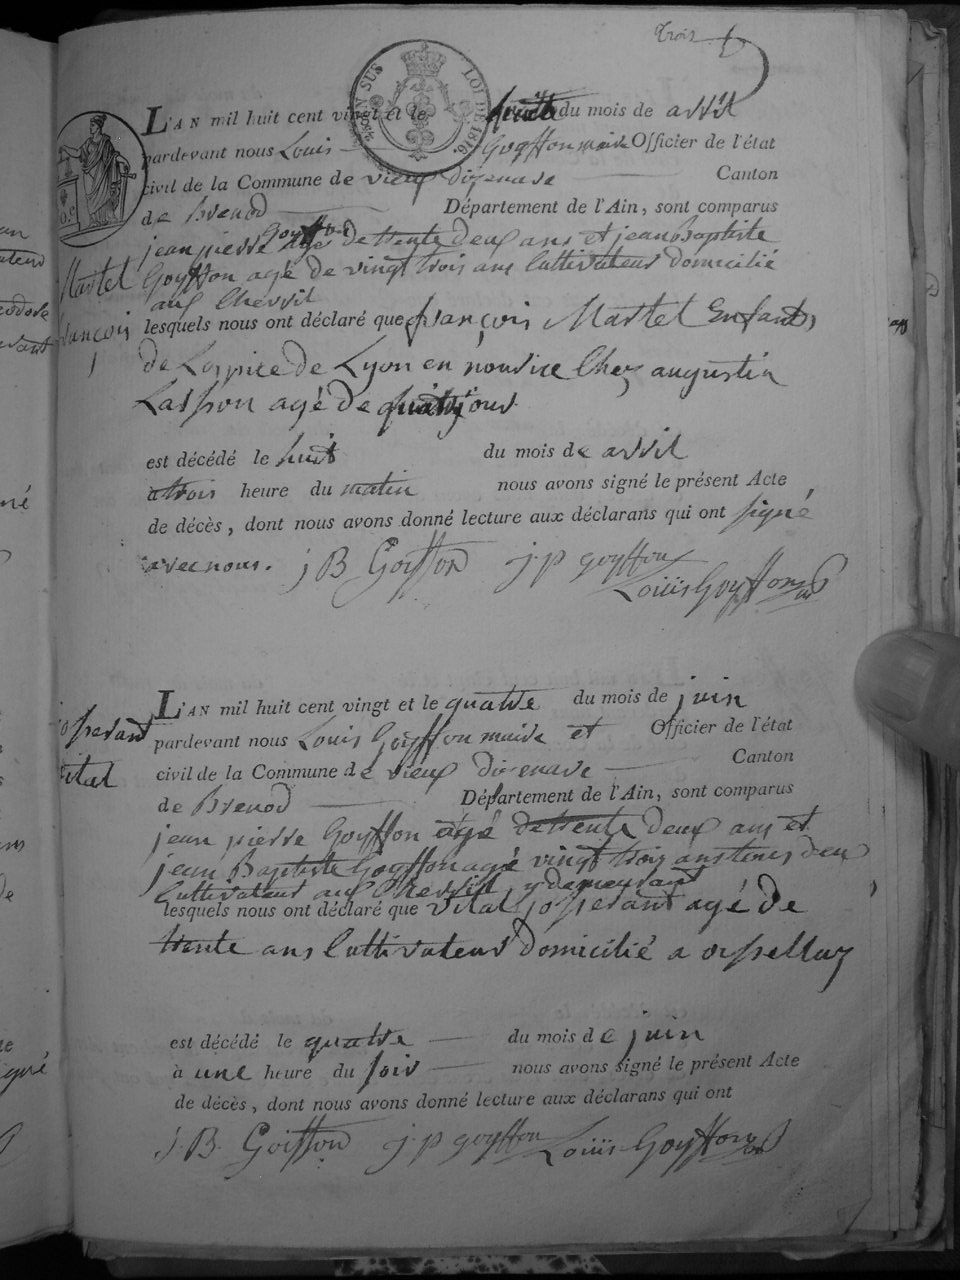 trois
L'AN mil huit cent vingt et le huit du mois de avril
pardevant nous Louis Goyffon maire Officier de l'état
civil de la Commune de vieux dizenave Canton
de Brenod Département de l'Ain, sont comparus
jean pierre goyffon agé de trente deux ans et jean Baptiste
Goyffon agé de vingt trois ans Cultivateurs domicilié
aux Chevril
Martel
françois
lesquels nous ont déclaré que françois Martel Enfants
de Lospice de Lyon en nourice Chez augustin
Lasson agé de quatre jours
est décédé le huit du mois de avril
à trois heure du matin nous avons signé le présent Acte
de décès, dont nous avons donné lecture aux déclarans qui ont signé
avec nous. j B Goyffon j. p goyffon
Louis Goyffon
L'AN mil huit cent vingt et le quatre du mois de juin
josserant
vital
pardevant nous Louis Goyffon maire et Officier de l'état
civil de la Commune de vieux dizenave Canton
de Brenod Département de l'Ain, sont comparus
jean pierre Goyffon agé de trente deux ans et
jean Baptiste Goyffon agé vingt trois ans tous deux
Cultivateurs aux Chevril y demeurant
lesquels nous ont déclaré que vital josserant agé de
trente ans Cultivateur domicilié a
est décédé le quatre du mois de juin
à une heure du soir nous avons signé le présent Acte
de décès, dont nous avons donné lecture aux déclarans qui ont
j. B. Goiffon j. p goyffon Louis Goyffon